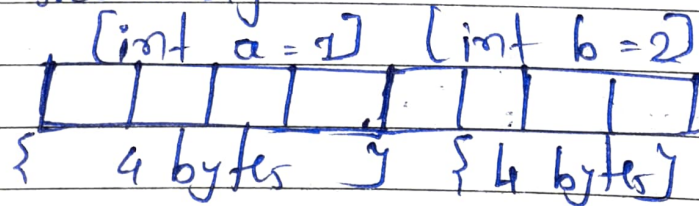 [int a = 1] [int b = 2]
{ 4 bytes } { 4 bytes }